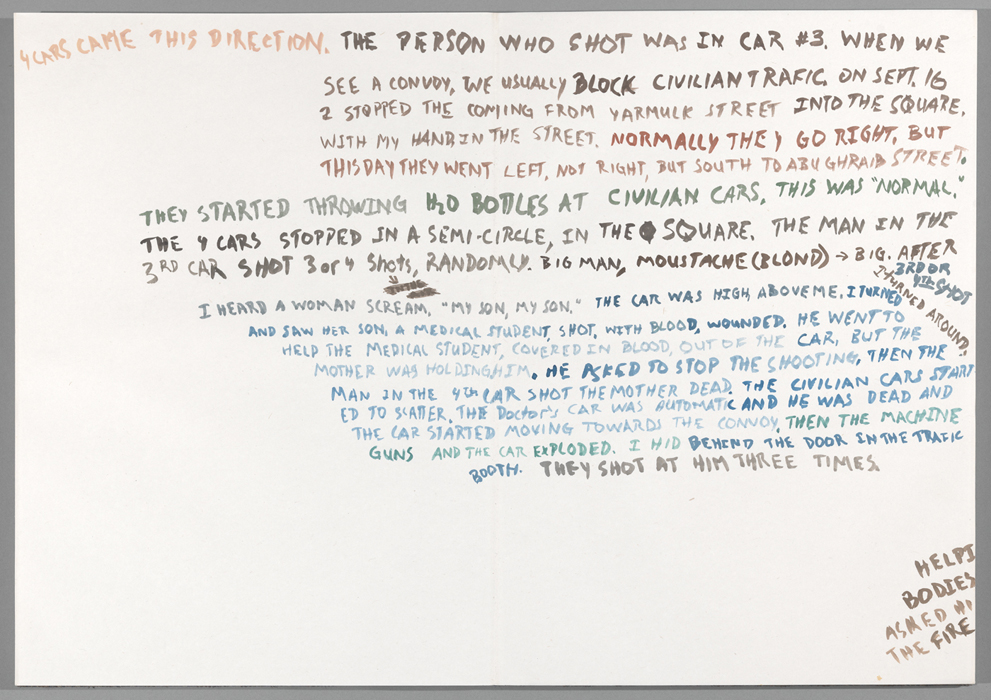 4 CARS CAME THIS DIRECTION. THE PERSON WHO SHOT WAS IN CAR #3. WHEN WE
SEE A CONVOY, WE USUALLY BLOCK CIVILIAN TRAFIC. ON SEPT. 16
2 STOPPED THE COMING FROM YARMULK STREET INTO THE SQUARE.
WITH MY HAND IN THE STREET. NORMALLY THEY GO RIGHT, BUT
THIS DAY THEY WENT LEFT, NOT RIGHT, BUT SOUTH TO ABU GHRAIB STREET.
THEY STARTED THROWING H2O BOTTLES AT CIVILIAN CARS, THIS WAS "NORMAL."
THE 4 CARS STOPPED IN A SEMI-CIRCLE, IN THE SQUARE. THE MAN IN THE
3RD CAR SHOT 3 or 4 Shots, RANDOMLY. BIG MAN, MOUSTACHE (BLOND) → BIG. AFTER
3RD OR
4th SHOT
I TURNED AROUND.
I HEARD A WOMAN SCREAM, "MY SON, MY SON." THE CAR WAS HIGH, ABOVE ME, I TURNED
AND SAW HER SON, A MEDICAL STUDENT, SHOT, WITH BLOOD, WOUNDED. HE WENT TO
HELP THE MEDICAL STUDENT, COVERED IN BLOOD, OUT OF THE CAR, BUT THE
MOTHER WAS HOLDING HIM. HE ASKED TO STOP THE SHOOTING, THEN THE
MAN IN THE 4th CAR SHOT THE MOTHER DEAD. THE CIVILIAN CARS START
ED TO SCATTER. THE Doctor's CAR WAS AUTOMATIC AND HE WAS DEAD AND
THE CAR STARTED MOVING TOWARDS THE CONVOY, THEN THE MACHINE
GUNS AND THE CAR EXPLODED. I HID BEHIND THE DOOR IN THE TRAFIC
BOOTH. THEY SHOT AT HIM THREE TIMES.
HELPI
BODIES
ASKED
THE FIRE